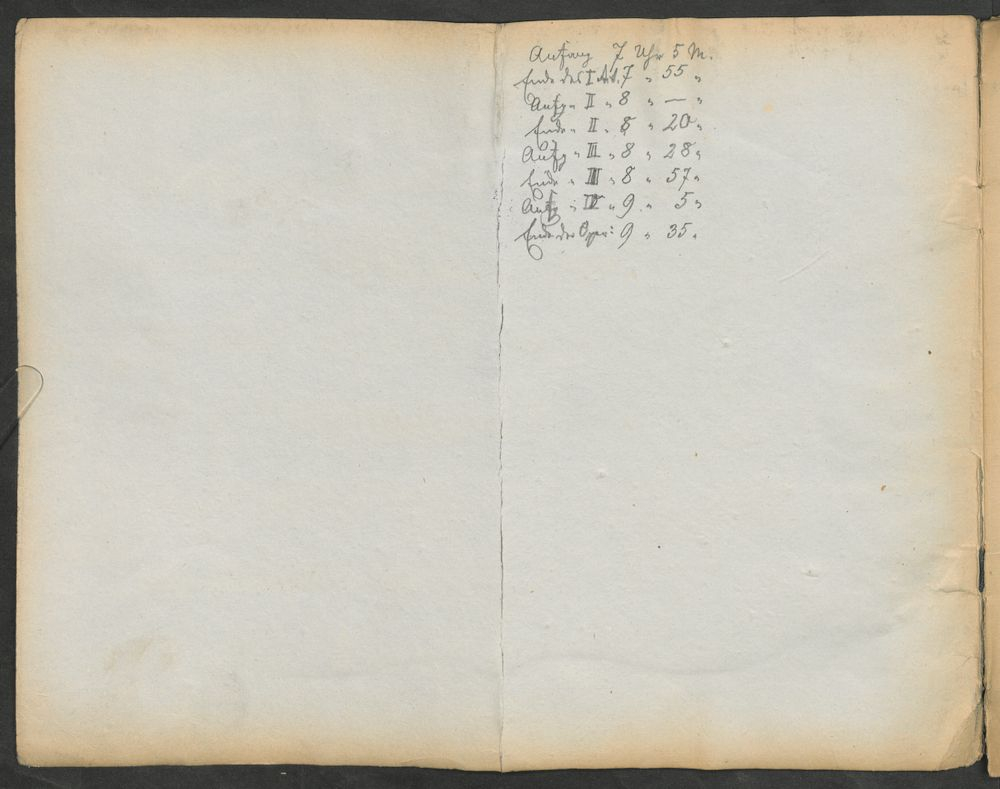 Anfang 7 Uhr 5 M.
Ende des I Akt. 7 " 55 "
Anfg " II " 8 " — "
Ende " II " 8 " 20 "
Anfg " III " 8 " 28 "
Ende " III " 8 " 57 "
Anfg " IV " 9 " 5 "
Ende der Oper: 9 " 35 "